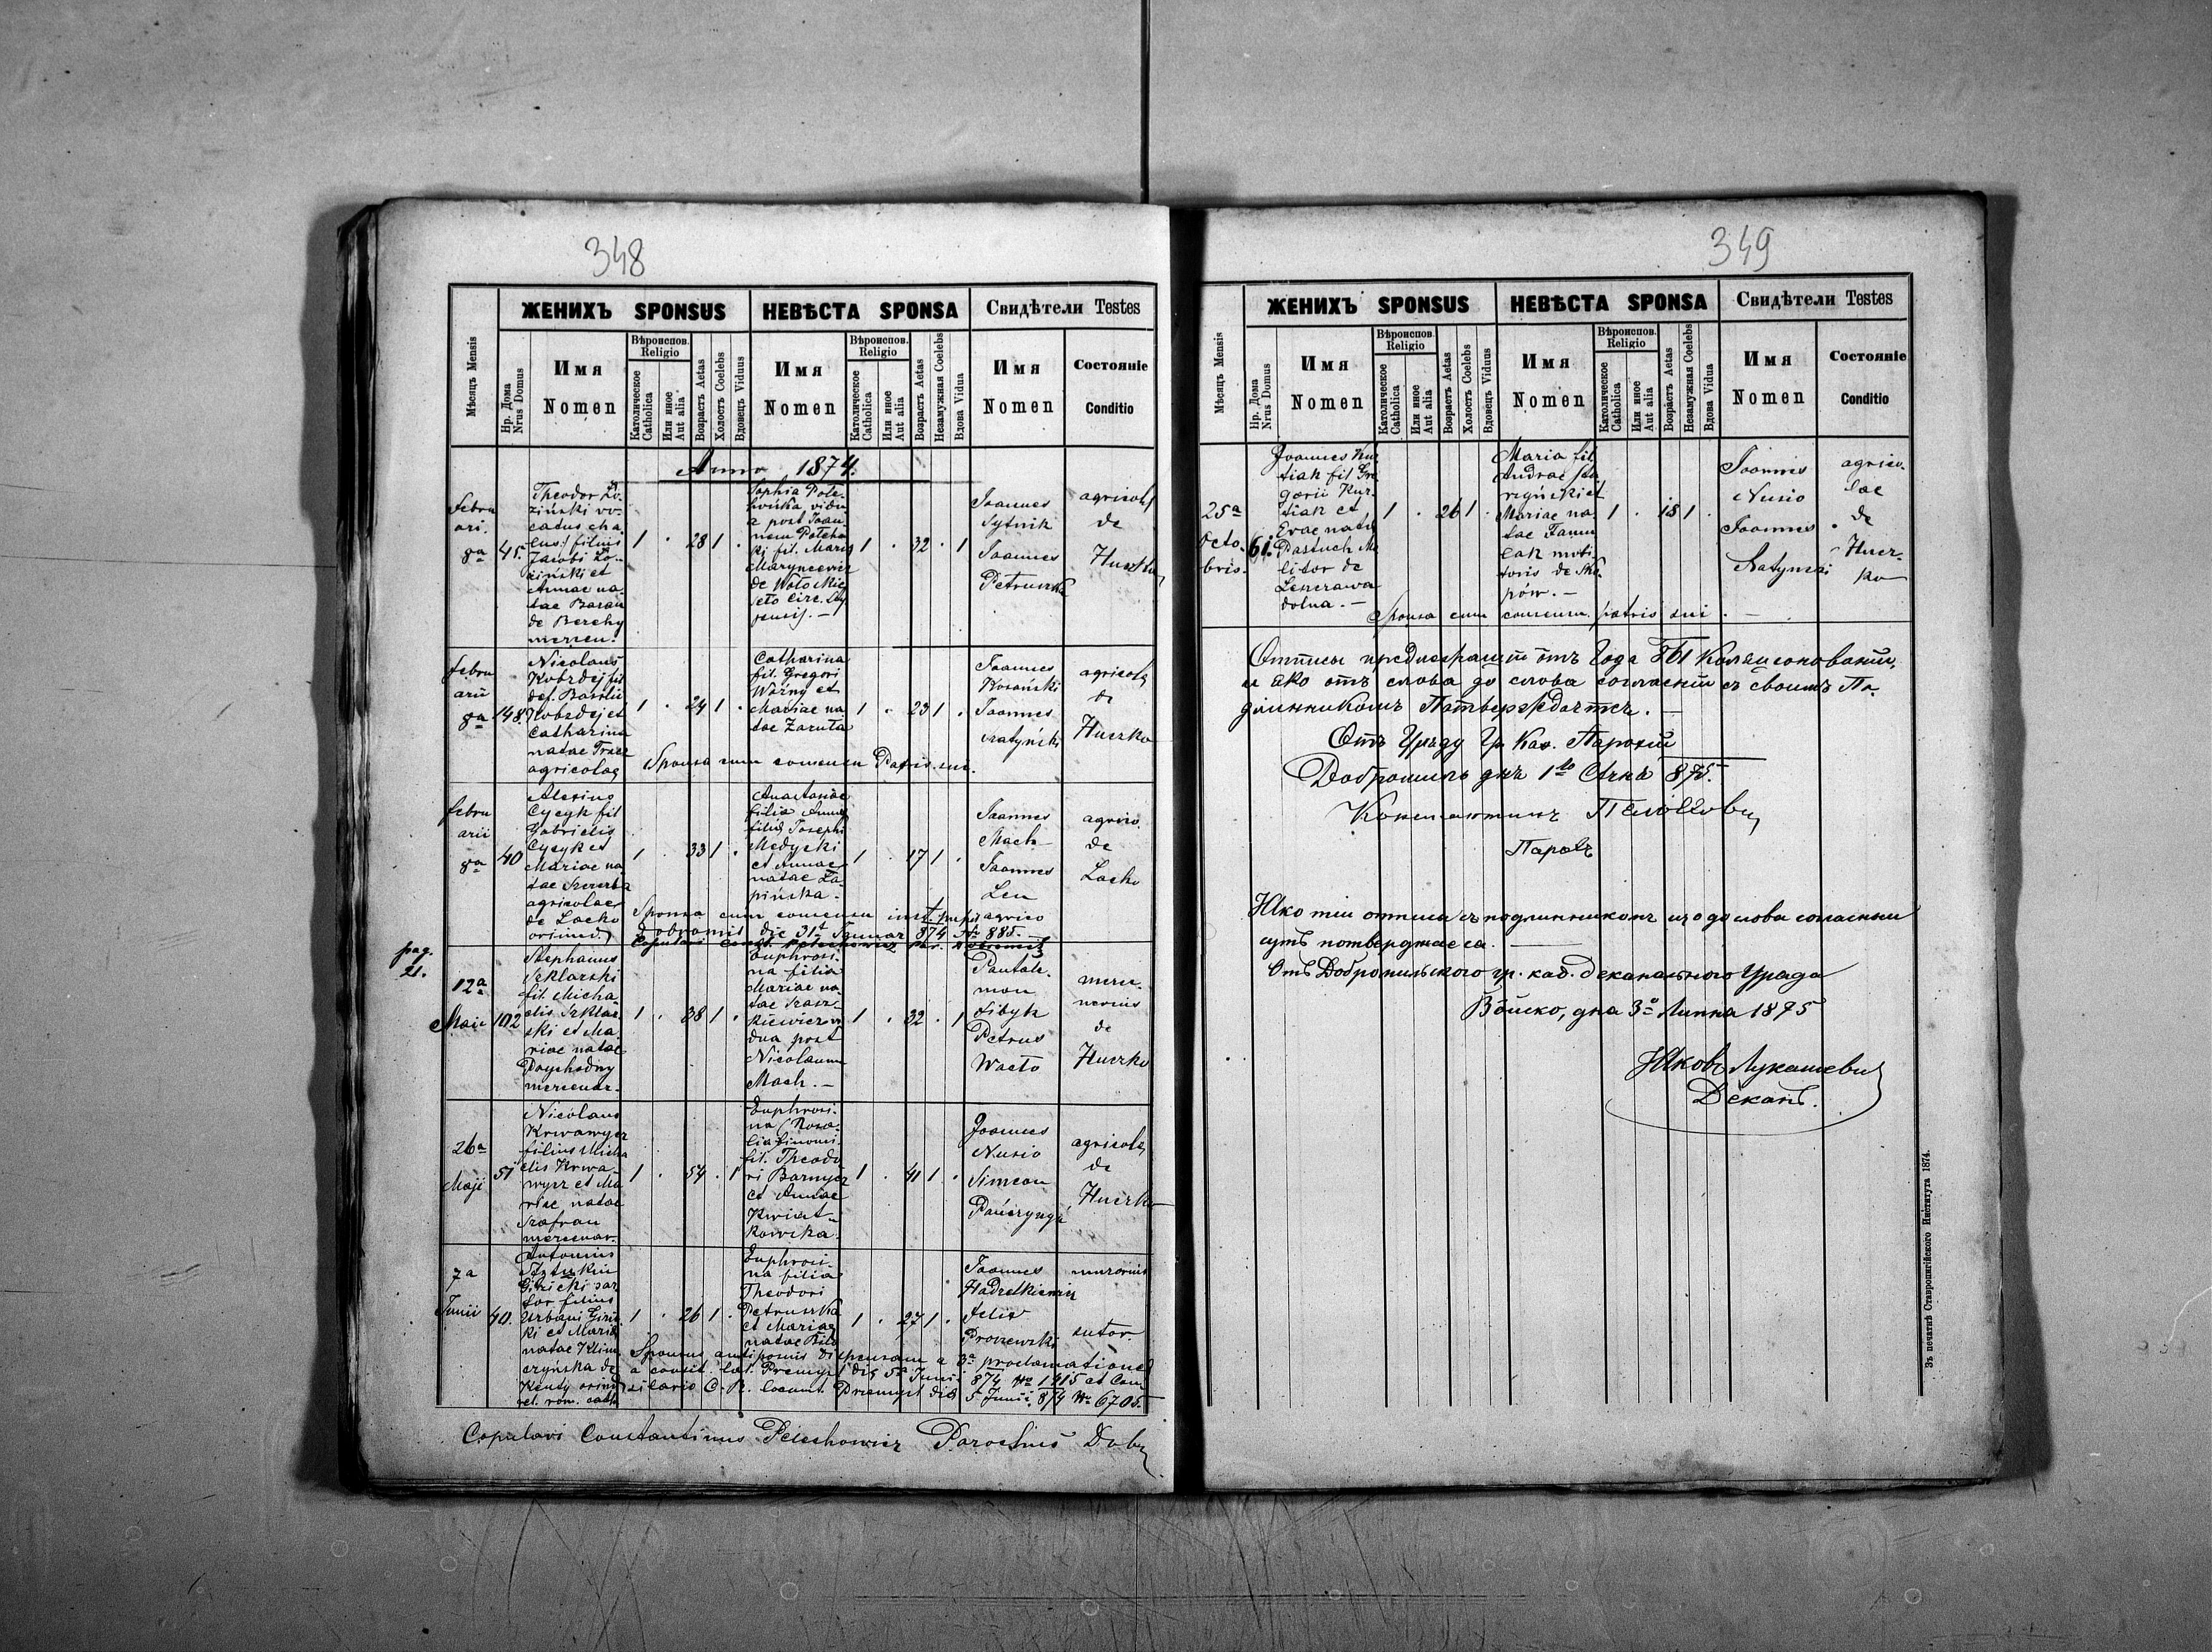 348
ЖЕНИХЪ SPONSUS
НЕВѢСТА SPONSA
Свидѣтели Testes
Мѣсяцъ Mensis
Нр. Дома
Nrus Domus
Имя
Nomen
Вѣроиспов.
Religio
Католическое
Catholica
Или иное
Aut alia
Возрастъ Aetas
Холостъ Coelebs
Вдовецъ Viduus
Имя
Nomen
Вѣроиспов.
Religio
Католическое
Catholica
Или иное
Aut alia
Возрастъ Aetas
Незамужная Coelebs
Вдова Vidua
Имя
Nomen
Состоянiе
Conditio
Anno 1874.
Febru
ari.
8a
45.
Theodor Ło
ziński vo
catus
filius
Jacobi Ło
ziński et
Annae na
tae Baran
de Berehy
mercen.
1 . 28 1 .
Sophia Pote
hońska vidu
a post Joan
nem Poteho
ki fil. Maria
Maryncewicz
de Wołoskie
sioło Circ.
1 . 32 . 1
Joannes
Sytnik
Joannes
Petruszka
agricolae
de
Huczko
Febru
arii
8a
148.
Nicolaus
Kobrdej fil
def. Basilii
Kobrdej et
Catharina
natae Tracz
agricolae
1 . 24 1 .
Catharina
fil. Gregori
Woźny et
Mariae na
tae Zaruta
1 . 23 1 .
Joannes
Kozoński
Joannes
Natyński
agricolae
de
Huczko
Sponsa cum consensu Patris sui.
Febru
arii
8a
40
Alexius
Cycyk fil
Gabrielis
Cycyk et
Mariae na
tae Szczerba
agricolae
de Lacko
oriund.
1 . 33 1 .
Anastasiae
filia Annae
filia Josephi
Medycki
et Annae
natae Ła
pińska.
1 . 17 1 .
Joannes
Mach
Joannes
Len
agrico
agrico.
de
Lacko
Sponsa cum consensu inst. pupil
Dobromil die 31t Januar 874 No 885.
Copulavi Const. Pelechowicz par. Dobromil
pag.
21.
12a
Maji
102
Stephanus
Szklarski
fil. Micha
elis Szklar
ski et Ma
riae natae
Paychodny
mercenar.
1 . 38 1 .
Euphrosi
na filia
Mariae na
tae
kiewicz vi
dua post
Nicolaum
Mach. —
1 . 32 . 1
Pantale
mon
Fibyk
Petrus
Wasto
merce
narius
de
Huczko
26a
Maji
51
Nicolaus
Krwawycz
filius Micha
elis Krwa
wycz et Ma
riae natae
Szafran
mercenar.
1 . 54 . 1
Euphrosi
na (Rosa
lia binomi.
fil. Theodo
ri Barnycz
et Annae
Kwiat
kowska.
1 . 41 1 .
Joannes
Nusio
Simeon
Pańczynya
agricolae
de
Huczko
7a
Junii
40.
Antonius
Giżicki sar
tor filius
Urbani Giżic
ki et Maria
natae Klim
czyńska de
Kenty oriund
rel. rom. cath
1 . 26 1 .
Euphrosi
na filia
Theodori
Petruszka
et Mariae
natae Bilo
1 . 27 1 .
Joannes
Hadzelkiewicz
Felix
Proszewski
murarius
sutor
Sponsus antiposuis dispensam a 3a proclamatione
a consist. lat. Premysl die 5a Junii 874 No 1415 et Com
silario C. R. locumt. Przemysl die 5 Junii 874 No 6705.
Copulavi Constantinus Pelechowicz Parochus Dobr
349
ЖЕНИХЪ SPONSUS
НЕВѢСТА SPONSA
Свидѣтели Testes
Мѣсяцъ Mensis
Нр. Дома
Nrus Domus
Имя
Nomen
Вѣроиспов.
Religio
Католическое
Catholica
Или иное
Aut alia
Возрастъ Aetas
Холостъ Coelebs
Вдовецъ Viduus
Имя
Nomen
Вѣроиспов.
Religio
Католическое
Catholica
Или иное
Aut alia
Возрастъ Aetas
Незамужная Coelebs
Вдова Vidua
Имя
Nomen
Состоянiе
Conditio
25a
Octo.
bris.
61.
Joannes Kur
tiak fil Gre
gorii Kur
tiak et
Evae natae
Pastuch Mo
litor de
Leszczawa
dolna. —
1 . 26 1 .
Maria fil
Andrae
et
Mariae na
tae Famu
lak moli
toris de
1 . 18 1 .
Joannes
Nusio
Joannes
Natynski
agrico
lae
de
Hucz
ko
Sponsa cum consensu patris sui. —
Отписы предлежащiи отъ года
и яко отъ слова до слова согласнiи съ своимъ По
длинникомъ Потверждаются. —
Отъ Уряду Гр. Каѳ. Парохiи
Добромиль дня 1го Сѣчня 875.
Константинъ Пелеховичъ
Парохъ
Яко тiи отписы съ подлинникомъ слово до слова согласныи
суть потверджаеся. —
Отъ Добромильского гр. каѳ. деканального Уряда
Войско, дня 3о Липня 1875
Яковъ Лукашевичъ
Деканъ.
Зъ печатнѣ Ставропигiйского Института 1874.